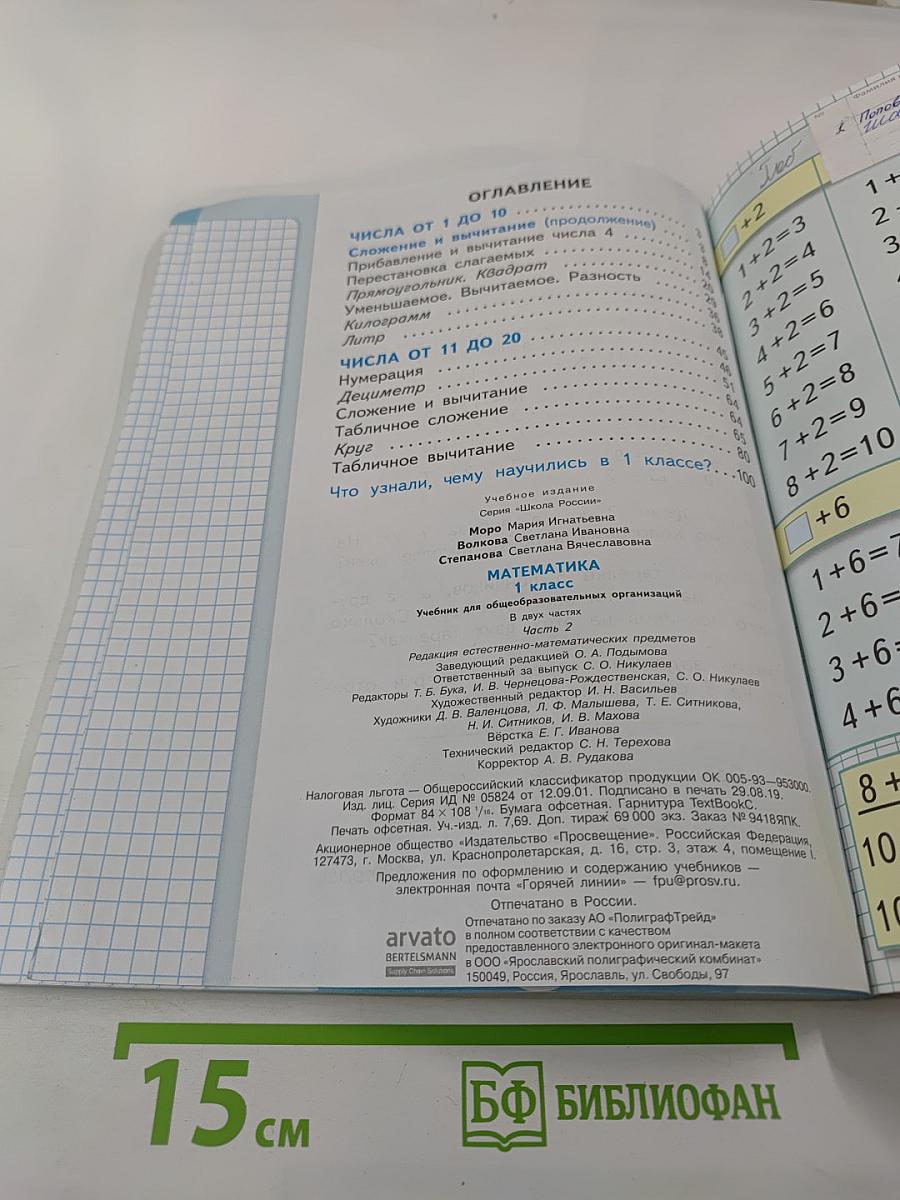 ОГЛАВЛЕНИЕ
ЧИСЛА ОТ 1 ДО 10 ........ 3
Сложение и вычитание (продолжение)
Прибавление и вычитание числа 4 ........ 8
Перестановка слагаемых ........ 14
Прямоугольник. Квадрат ........ 20
Уменьшаемое. Вычитаемое. Разность ........ 29
Килограмм ........ 36
Литр ........ 38
ЧИСЛА ОТ 11 ДО 20 ........ 45
Нумерация ........ 46
Дециметр ........ 51
Сложение и вычитание ........ 64
Табличное сложение ........ 64
Круг ........ 65
Табличное вычитание ........ 80
Что узнали, чему научились в 1 классе?...100
Учебное издание
Серия «Школа России»
Моро Мария Игнатьевна
Волкова Светлана Ивановна
Степанова Светлана Вячеславовна
МАТЕМАТИКА
1 класс
Учебник для общеобразовательных организаций
В двух частях
Часть 2
Редакция естественно-математических предметов
Заведующий редакцией О. А. Подымова
Ответственный за выпуск С. О. Никулаев
Редакторы Т. Б. Бука, И. В. Чернецова-Рождественская, С. О. Никулаев
Художественный редактор И. Н. Васильев
Художники Д. В. Валенцова, Л. Ф. Малышева, Т. Е. Ситникова,
Н. И. Ситников, И. В. Махова
Вёрстка Е. Г. Иванова
Технический редактор С. Н. Терехова
Корректор А. В. Рудакова
Налоговая льгота — Общероссийский классификатор продукции ОК 005-93—953000.
Изд. лиц. Серия ИД № 05824 от 12.09.01. Подписано в печать 29.08.19.
Формат 84 × 108 1/16. Бумага офсетная. Гарнитура TextBookC.
Печать офсетная. Уч.-изд. л. 7,69. Доп. тираж 69 000 экз. Заказ № 9418ЯПК.
Акционерное общество «Издательство «Просвещение». Российская Федерация,
127473, г. Москва, ул. Краснопролетарская, д. 16, стр. 3, этаж 4, помещение I.
Предложения по оформлению и содержанию учебников —
электронная почта «Горячей линии» — fpu@prosv.ru.
Отпечатано в России.
arvato
BERTELSMANN
Supply Chain Solutions
Отпечатано по заказу АО «ПолиграфТрейд»
в полном соответствии с качеством
предоставленного электронного оригинал-макета
в ООО «Ярославский полиграфический комбинат»
150049, Россия, Ярославль, ул. Свободы, 97
№
Фамилия
1
+2
1+2=3
2+2=4
3+2=5
4+2=6
5+2=7
6+2=8
7+2=9
8+2=10
+6
1+6=7
2+6=
3+6=
4+6
1+
2
3
8+
10
10
15 см
БФ БИБЛИОФАН